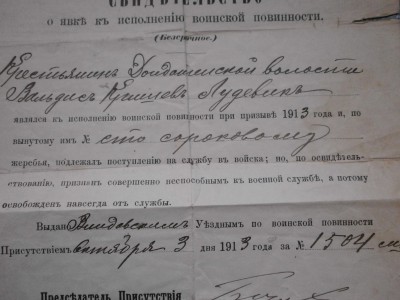 СВИДѢТЕЛЬСТВО
о явкѣ къ исполненію воинской повинности.
(Безсрочное.)
Крестьянинъ Дондангенской волости
Вальдисъ Лудевикъ
являлся къ исполненію воинской повинности при призывѣ 1913 года и, по
вынутому имъ № сто сороковому
жеребья, подлежалъ поступленію на службу въ войска; но, по освидѣтель-
ствованію, признанъ совершенно неспособнымъ къ военной службѣ, а потому
освобожденъ навсегда отъ службы.
Выдано Виндавскимъ Уѣзднымъ по воинской повинности
Присутствіемъ Октября 3 дня 1913 года за № 1504
Предсѣдатель Присутствія